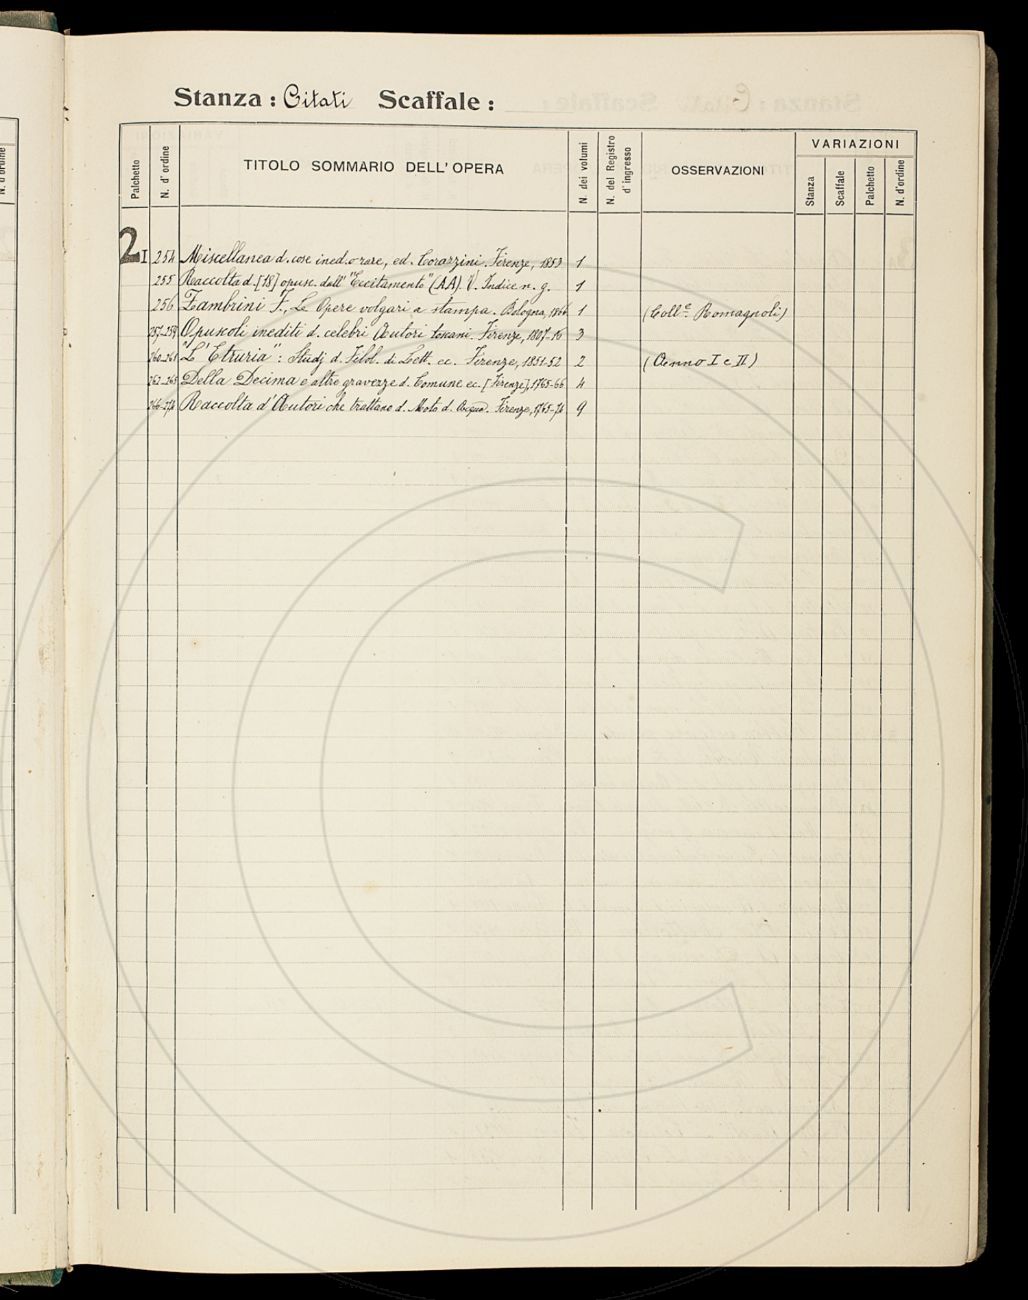 Stanza: Citati Scaffale:
Palchetto N. d'ordine TITOLO SOMMARIO DELL'OPERA N. dei volumi N. del Registro d'ingresso OSSERVAZIONI VARIAZIONI
Stanza Scaffale Palchetto N. d'ordine
2 I 254 Miscellanea d. cose ined. o rare, ed. Corazzini. Firenze, 1853 1
255 Raccolta d. [18] opusc. dall' "Eccitamento" (AA) V. Indice n. g. 1
256 Zambrini F., Le Opere volgari a stampa. Bologna, 1866 1 (Coll.e Romagnoli)
257-259 Opuscoli inediti d. celebri Autori toscani. Firenze, 1807-16 3
260-261 "L'Etruria": Studj d. Filol. di Lett. ec. Firenze, 1851-52 2 (Anno I e II)
262-265 Della Decima e altre gravezze d. Comune ec. [Firenze], 1765-66 4
266-274 Raccolta d'Autori che trattano d. Moto d. Acque. Firenze, 1765-74 9